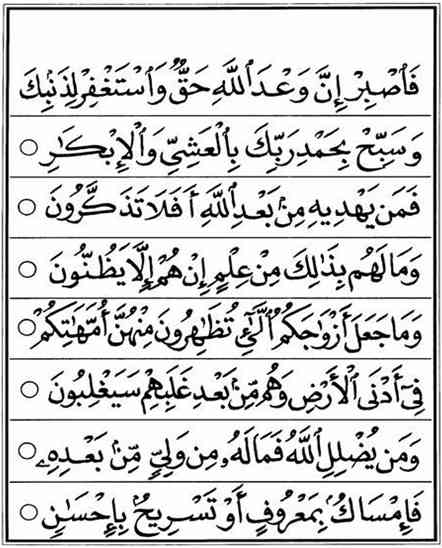 فَٱصْبِرْ إِنَّ وَعْدَ ٱللَّهِ حَقٌّ وَٱسْتَغْفِرْ لِذَنۢبِكَ
وَسَبِّحْ بِحَمْدِ رَبِّكَ بِٱلْعَشِىِّ وَٱلْإِبْكَٰرِ ○
فَمَن يَهْدِيهِ مِنۢ بَعْدِ ٱللَّهِ أَفَلَا تَذَكَّرُونَ ○
وَمَا لَهُم بِذَٰلِكَ مِنْ عِلْمٍ إِنْ هُمْ إِلَّا يَظُنُّونَ ○
وَمَا جَعَلَ أَزْوَٰجَكُمُ ٱلَّٰٓـِٔى تُظَٰهِرُونَ مِنْهُنَّ أُمَّهَٰتِكُمْ ○
فِىٓ أَدْنَى ٱلْأَرْضِ وَهُم مِّنۢ بَعْدِ غَلَبِهِمْ سَيَغْلِبُونَ ○
وَمَن يُضْلِلِ ٱللَّهُ فَمَا لَهُۥ مِن وَلِىٍّ مِّنۢ بَعْدِهِۦ ○
فَإِمْسَاكٌۢ بِمَعْرُوفٍ أَوْ تَسْرِيحٌۢ بِإِحْسَٰنٍ ○